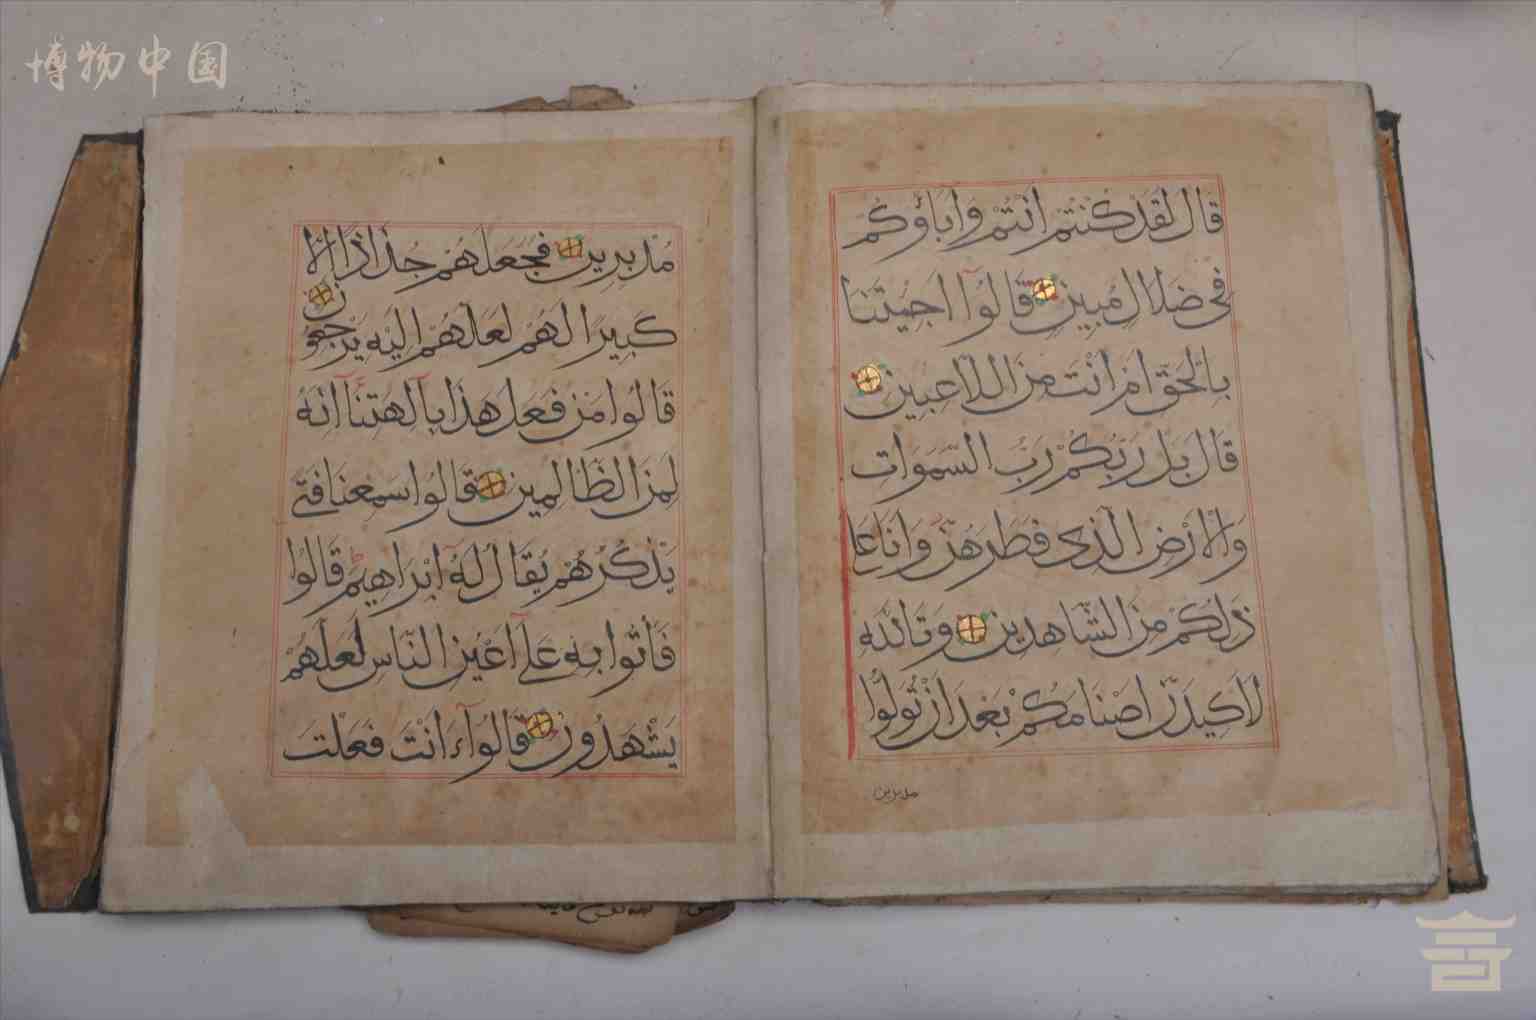 博物中国
قَالَ لَقَدْ كُنْتُمْ اَنْتُمْ وَاٰبَاؤُكُمْ
فِى ضَلَالٍ مُبِينٍ قَالُوٓا اَجِئْتَنَا
بِالْحَقِّ اَمْ اَنْتَ مِنَ اللَّاعِبِينَ
قَالَ بَلْ رَبُّكُمْ رَبُّ السَّمَوَاتِ
وَالْاَرْضِ الَّذِى فَطَرَهُنَّ وَاَنَا عَلَى
ذَلِكُمْ مِنَ الشَّاهِدِينَ وَتَاللّٰهِ
لَاَكِيدَنَّ اَصْنَامَكُمْ بَعْدَ اَنْ تُوَلُّوا
مدبرين
مُدْبِرِينَ فَجَعَلَهُمْ جُذَاذًا اِلَّا
كَبِيرًا لَهُمْ لَعَلَّهُمْ اِلَيْهِ يَرْجِعُونَ
قَالُوا مَنْ فَعَلَ هَذَا بِاٰلِهَتِنَآ اِنَّهُ
لَمِنَ الظَّالِمِينَ قَالُوا سَمِعْنَا فَتًى
يَذْكُرُهُمْ يُقَالُ لَهُٓ اِبْرَاهِيمُ قَالُوا
فَأْتُوا بِهِ عَلَٓى اَعْيُنِ النَّاسِ لَعَلَّهُمْ
يَشْهَدُونَ قَالُوٓا ءَاَنْتَ فَعَلْتَ